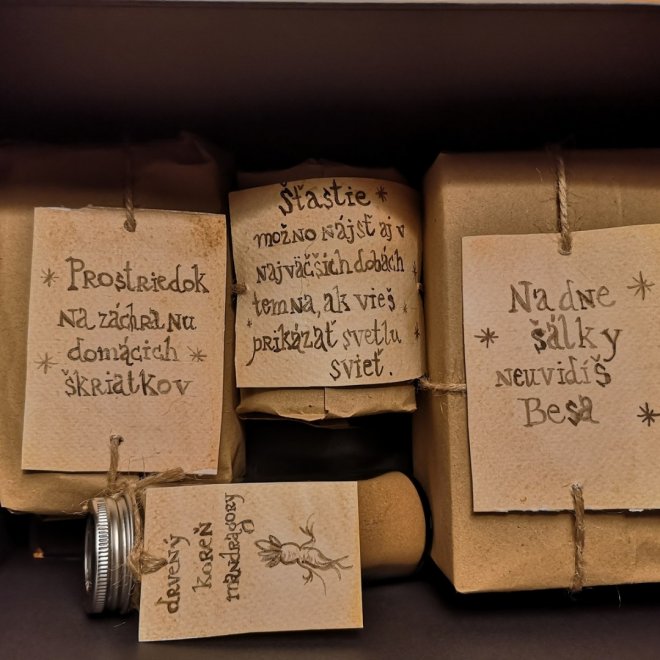 Prostriedok
na záchranu
domácich
škriatkov
Šťastie
možno nájsť aj v
najväčších dobách
temna, ak vieš
prikázať svetlu
svieť.
Na dne
šálky
neuvidíš
Besa
drvený
koreň
mandragory